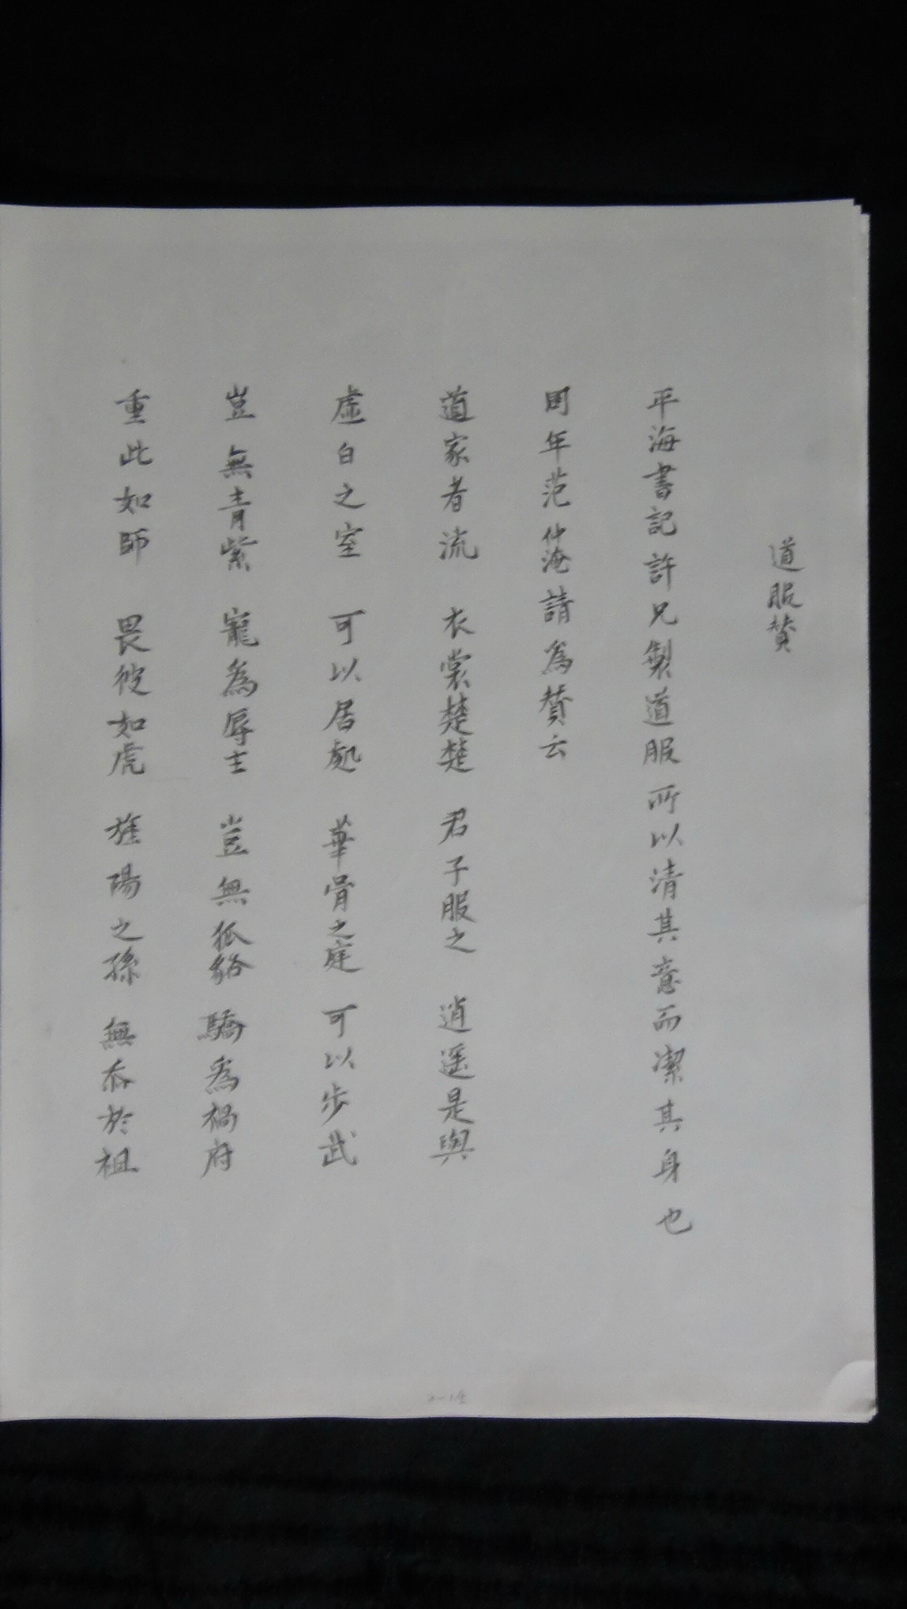 道服赞
平海書記許兄製道服所以清其意而潔其身也
同年范仲淹請為贊云
道家者流 衣裳楚楚 君子服之 逍遥是與
虛白之室 可以居處 華胥之庭 可以步武
豈無青紫 寵為辱主 豈無狐貉 驕為禍府
重此如師 畏彼如虎 旌陽之孫 無忝於祖